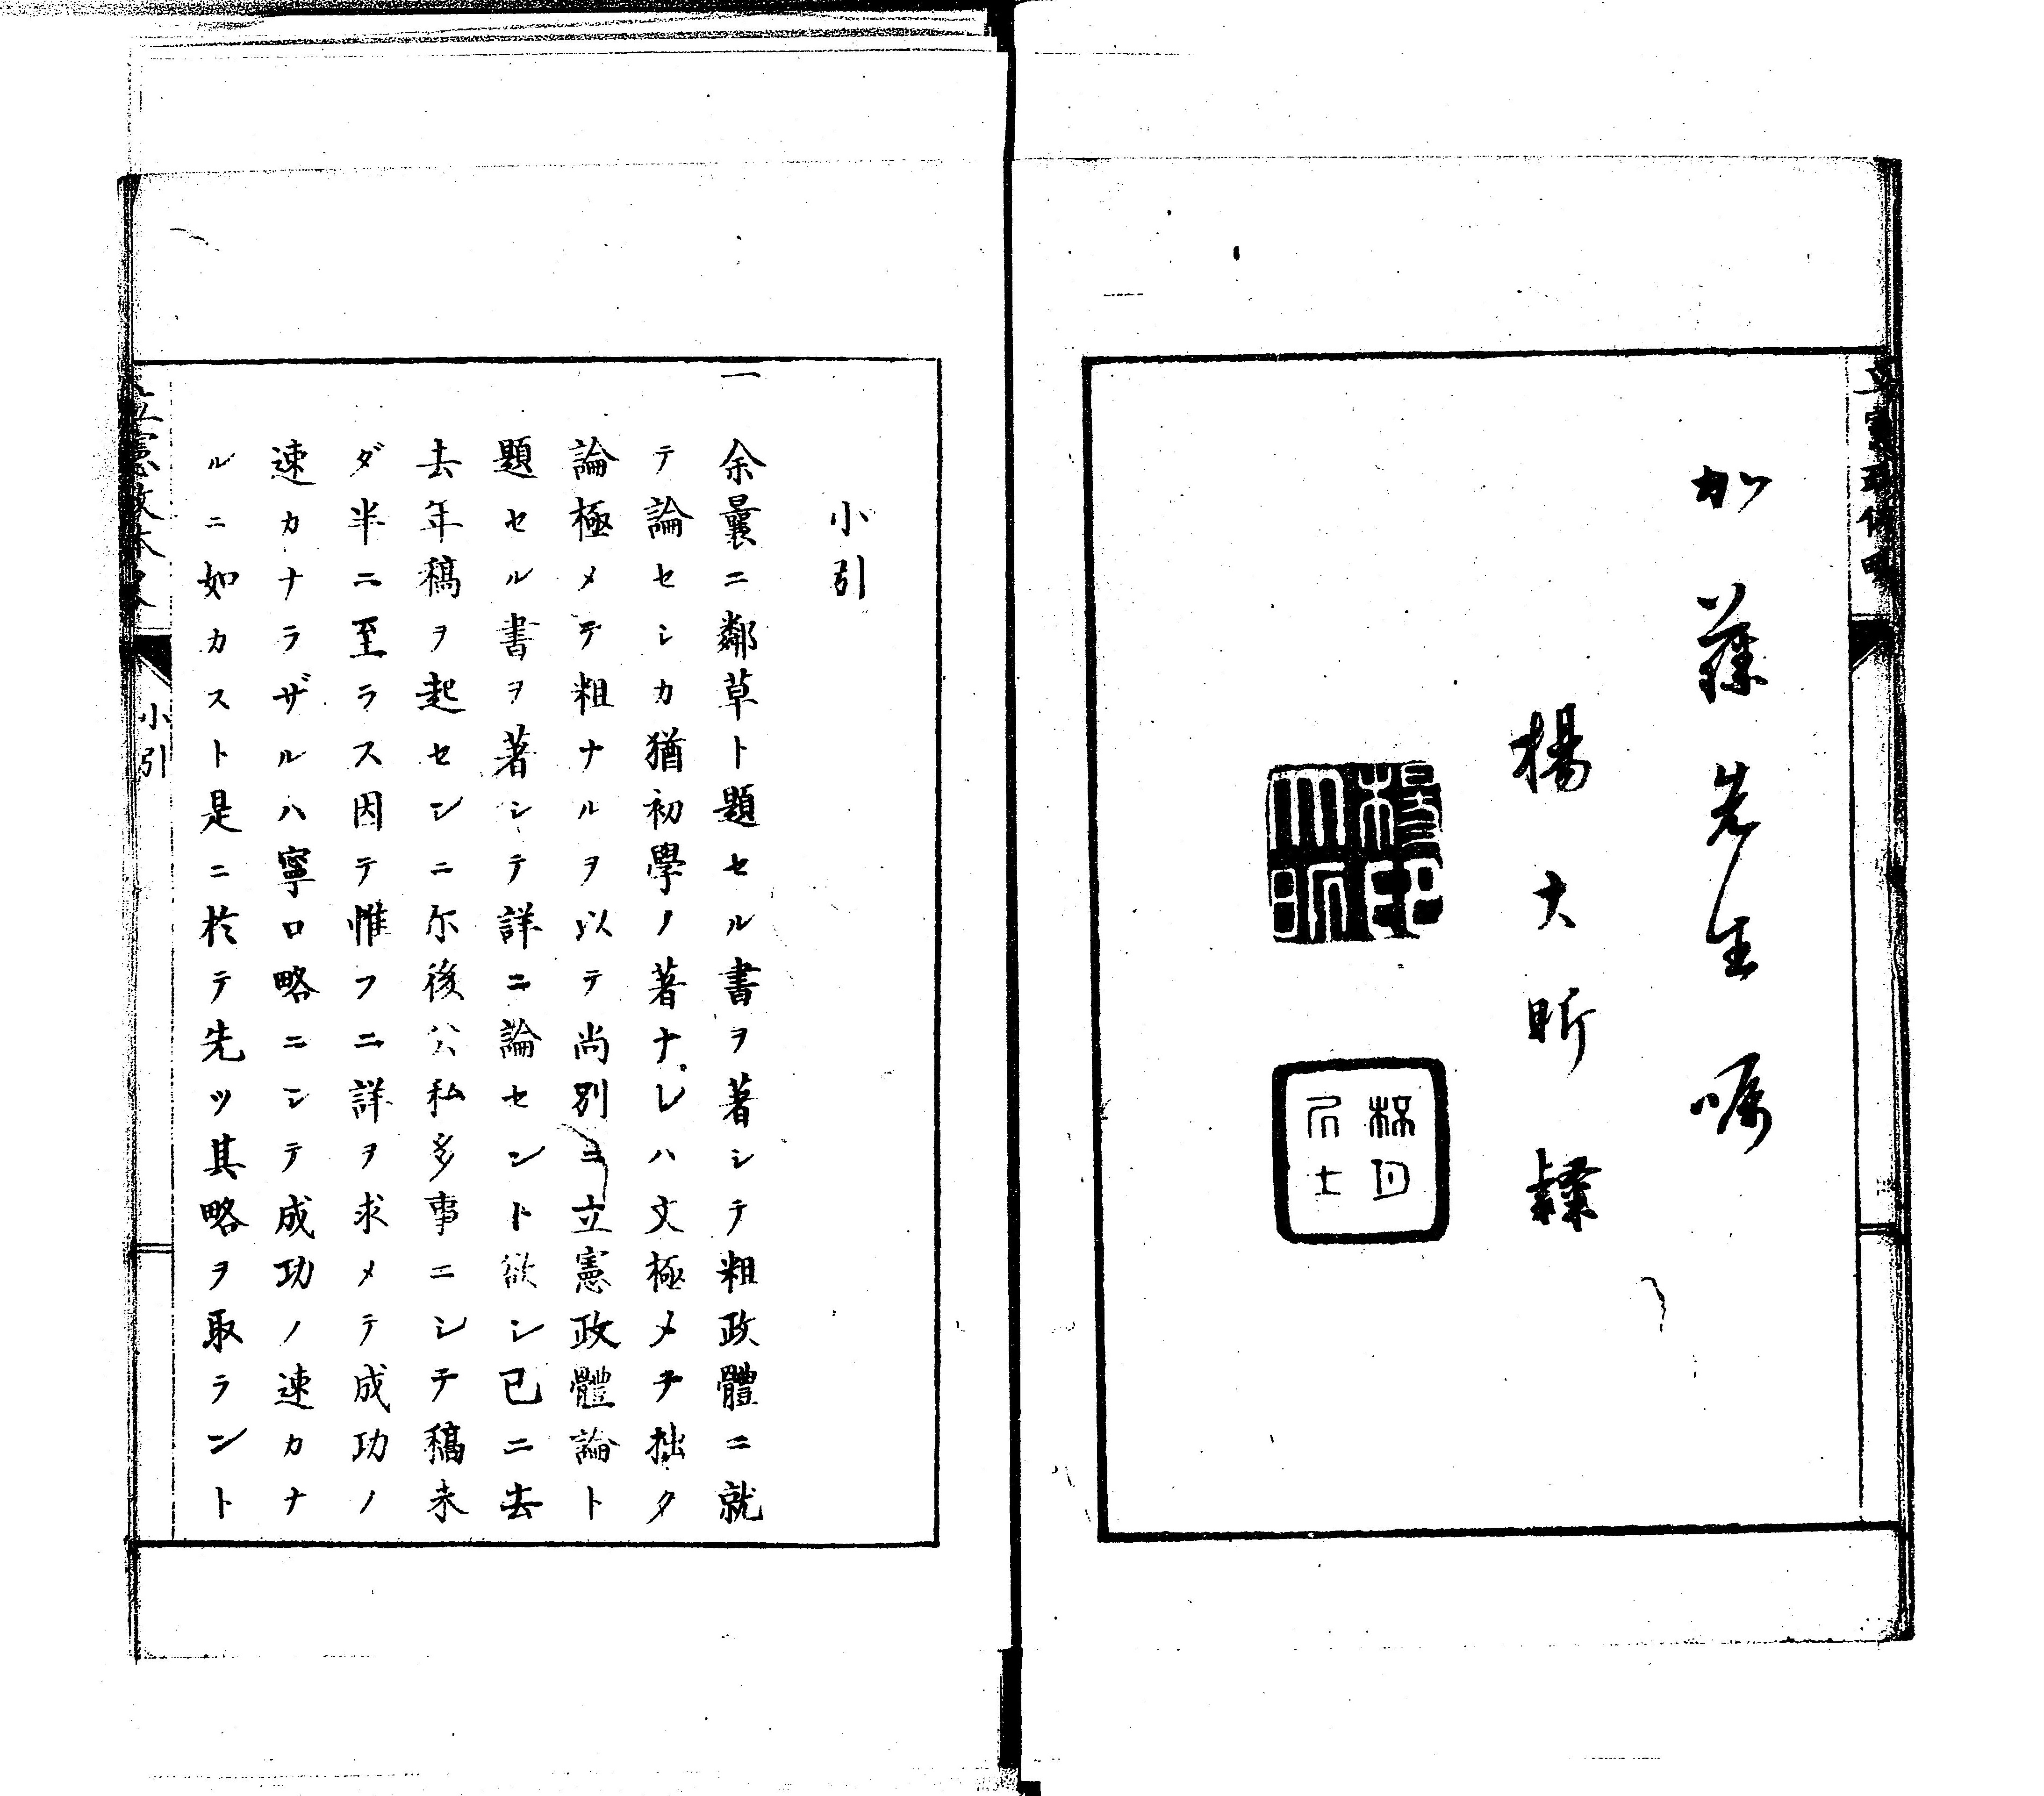 加藤先生嘱
楊大昕隸
小引
一余曩ニ鄰草ト題セル書ヲ著シテ粗政體ニ就
テ論セシカ猶初學ノ著ナレハ文極メテ拙ク
論極メテ粗ナルヲ以テ尚別ヨ立憲政體論ト
題セル書ヲ著シテ詳ニ論セント欲シ已ニ去
去年稿ヲ起センニ尓後公私多事ニシテ稿未
ダ半ニ至ラス因テ惟フニ詳ヲ求メテ成功ノ
速カナラザルハ寧ロ略ニシテ成功ノ速カナ
ルニ如カスト是ニ於テ先ツ其略ヲ取ラント
小引